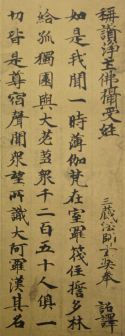 稱讚淨土佛攝受經
三藏法師玄奘奉 詔譯
如是我聞一時薄伽梵在室羅筏住誓多林
給孤獨園與大苾芻衆千二百五十人俱一
切皆是尊宿聲聞衆望所識大阿羅漢其名